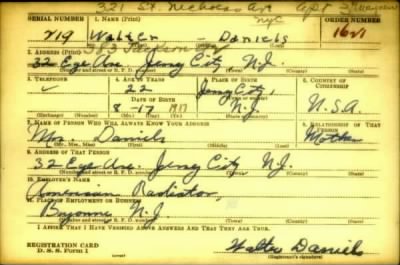 321 St. Nicholas Ave Apt 3
nyc
SERIAL NUMBER 1. NAME (Print) ORDER NUMBER
219 Walter - Daniels 1621
(First) (Middle) (Last)
2. ADDRESS (Print)
32 Ege Ave. Jersey City N.J.
(Number and street or R. F. D. number) (Town) (County) (State)
3. TELEPHONE 4. AGE IN YEARS 5. PLACE OF BIRTH 6. COUNTRY OF CITIZENSHIP
22 Jersey City,
DATE OF BIRTH
8-17 1917 N.J. U.S.A.
(Mo.) (Day) (Yr.) (State or country)
7. NAME OF PERSON WHO WILL ALWAYS KNOW YOUR ADDRESS 8. RELATIONSHIP OF THAT PERSON
Mrs. Daniels Mother
(Mr., Mrs., Miss) (First) (Middle) (Last)
9. ADDRESS OF THAT PERSON
32 Ege Ave. Jersey City N.J.
(Number and street or R. F. D. number) (Town) (County) (State)
10. EMPLOYER'S NAME
American Radiator,
11. PLACE OF EMPLOYMENT OR BUSINESS
Bayonne N.J.
(Number and street or R. F. D. number) (Town) (County) (State)
I AFFIRM THAT I HAVE VERIFIED ABOVE ANSWERS AND THAT THEY ARE TRUE.
REGISTRATION CARD
D. S. S. Form 1
Walter Daniels
(Registrant's signature)